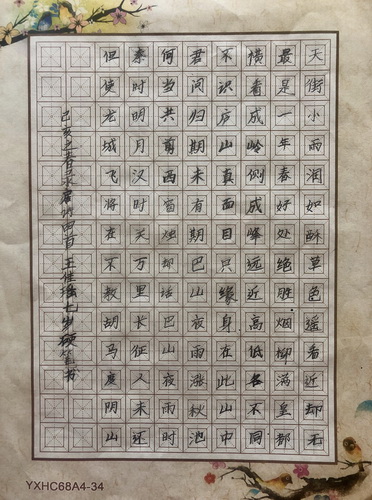 天街小雨润如酥草色遥看近却无
最是一年春好处绝胜烟柳满皇都
横看成岭侧成峰远近高低各不同
不识庐山真面目只缘身在此山中
君问归期未有期巴山夜雨涨秋池
何当共剪西窗烛却话巴山夜雨时
秦时明月汉时关万里长征人未还
但使龙城飞将在不教胡马度阴山
己亥之春录唐诗四首王佳瑶七岁硬笔书
YXHC68A4-34